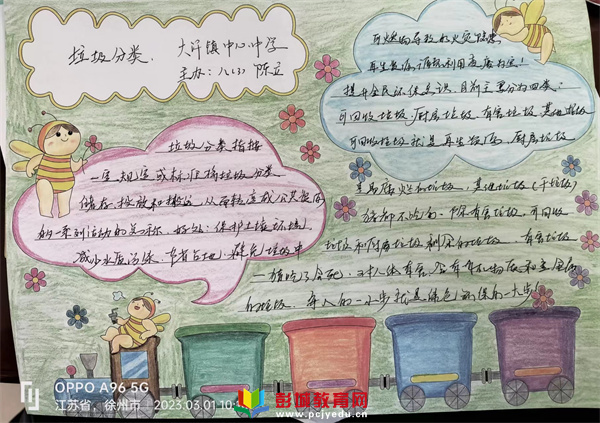 垃圾分类
大许镇中心中学
主办：八(3) 陈
垃圾分类指按
一定规定或标准将垃圾分类
储存、投放和搬运，从而转变成公共资源
的一系列活动的总称，好处：保护土壤环境，
减少水质污染，节省占地，避免垃圾中
可燃物导致的火灾隐患
再生资源循环利用变废为宝！
提升全民环保意识，目前主要分为四类：
可回收垃圾、厨房垃圾、有害垃圾、其他垃圾
可回收垃圾就是再生资源，厨房垃圾
垃圾，其他垃圾（干垃圾）
猪都不吃的，除有害垃圾、可回收
垃圾和厨房垃圾剩余的垃圾，有害垃圾
一猪吃了会死，对人体有害，含有
的垃圾，每人的一小步就是绿色环保的一大步！
OPPO A96 5G
江苏省，徐州市 2023.03.01 10:
彭城教育网
www.pcjyedu.cn